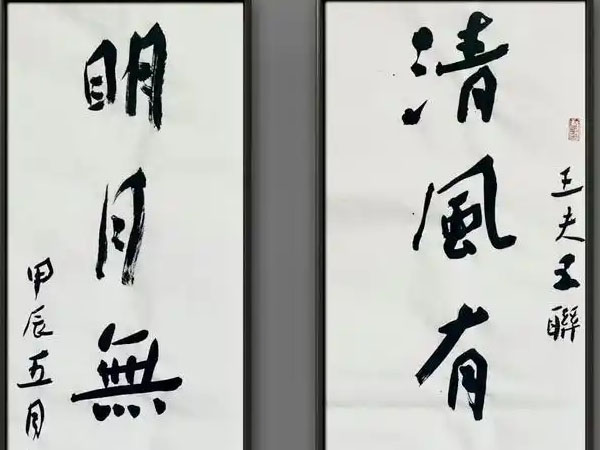 王夫之聯
清風有
明月無
甲辰五月